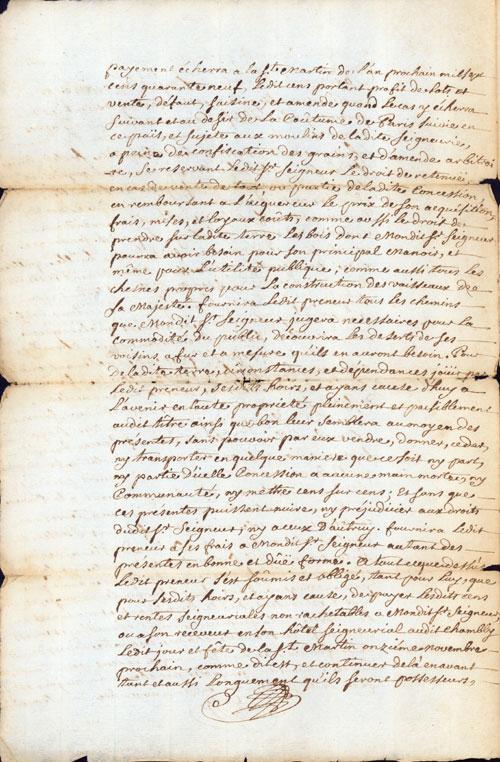 payement écherra a la St. Martin de l'an prochain mil sept
cens quarante neuf, Ledit cens portant profit de lots et
vente, defaut, saisine, et amende quand le cas y écherra
Suivant et au desir de La Coutume de Paris Suivie en
ce païs, et sujete aux moulins de ladite Seigneurie,
a peine de confiscation des grains, et d'amende arbitrai
re, se reservant Ledit Sr. Seigneur Le droit de retenüe,
en cas de vente de tout ou partie de ladite Concession
en remboursant a L'acquereur Le prix de son acquisition,
frais, mises, et loyaux couts, comme aussi le droit de
prendre sur ladite terre Les bois dont Mondit Sr. Seigneur
poura avoir besoin pour son principal Manoir, et
même pour L'utilité publique, comme aussi tous les
chesnes propres pour La construction des vaisseaux de
Sa Majesté. fournira Ledit preneur tous les chemins
que Mondit Sr. Seigneur jugera nécessaires pour La
commodité du public, découvrira les deserts de ses
voisins a fur et a mesure qu'ils en auront besoin. Pour
de ladite terre, circonstances, et dependances joüir par
Ledit preneur, sesdits hoirs, et ayans cause d'huy a
L'avenir en toute propriété pleinement et paisiblement
audit titre ainsi que bon leur Semblera au moyen des
presentes, sans pouvoir par eux vendre, donner, ceder,
ny transporter en quelque maniere que ce soit ny part,
ny partie d'icelle Concession a aucune main morte, ny
Communauté, ny mettre cens sur cens; Et sans que
ces presentes puissent nuire, ny préjudicier aux droits
dudit Sr. Seigneur, ny a ceux D'autruy. fournira Ledit
preneur a ses frais a Mondit Sr. Seigneur autant des
presentes en bonne et düe forme. A tout ce que dessus
Ledit preneur s'est soumis et obligé, tant pour Luy, que
pour sesdits hoirs, et ayans cause, de payer Lesdits cens
et rentes Seigneuriales non rachetables a Mondit Sr. Seigneur
ou a son receveur en son hôtel seigneurial audit Chambly
Ledit jour et fête de la St. Martin onzième novembre
prochain, comme dit est, et continuer dela en avant
tant et aussi Longuement qu'ils seront possesseurs,